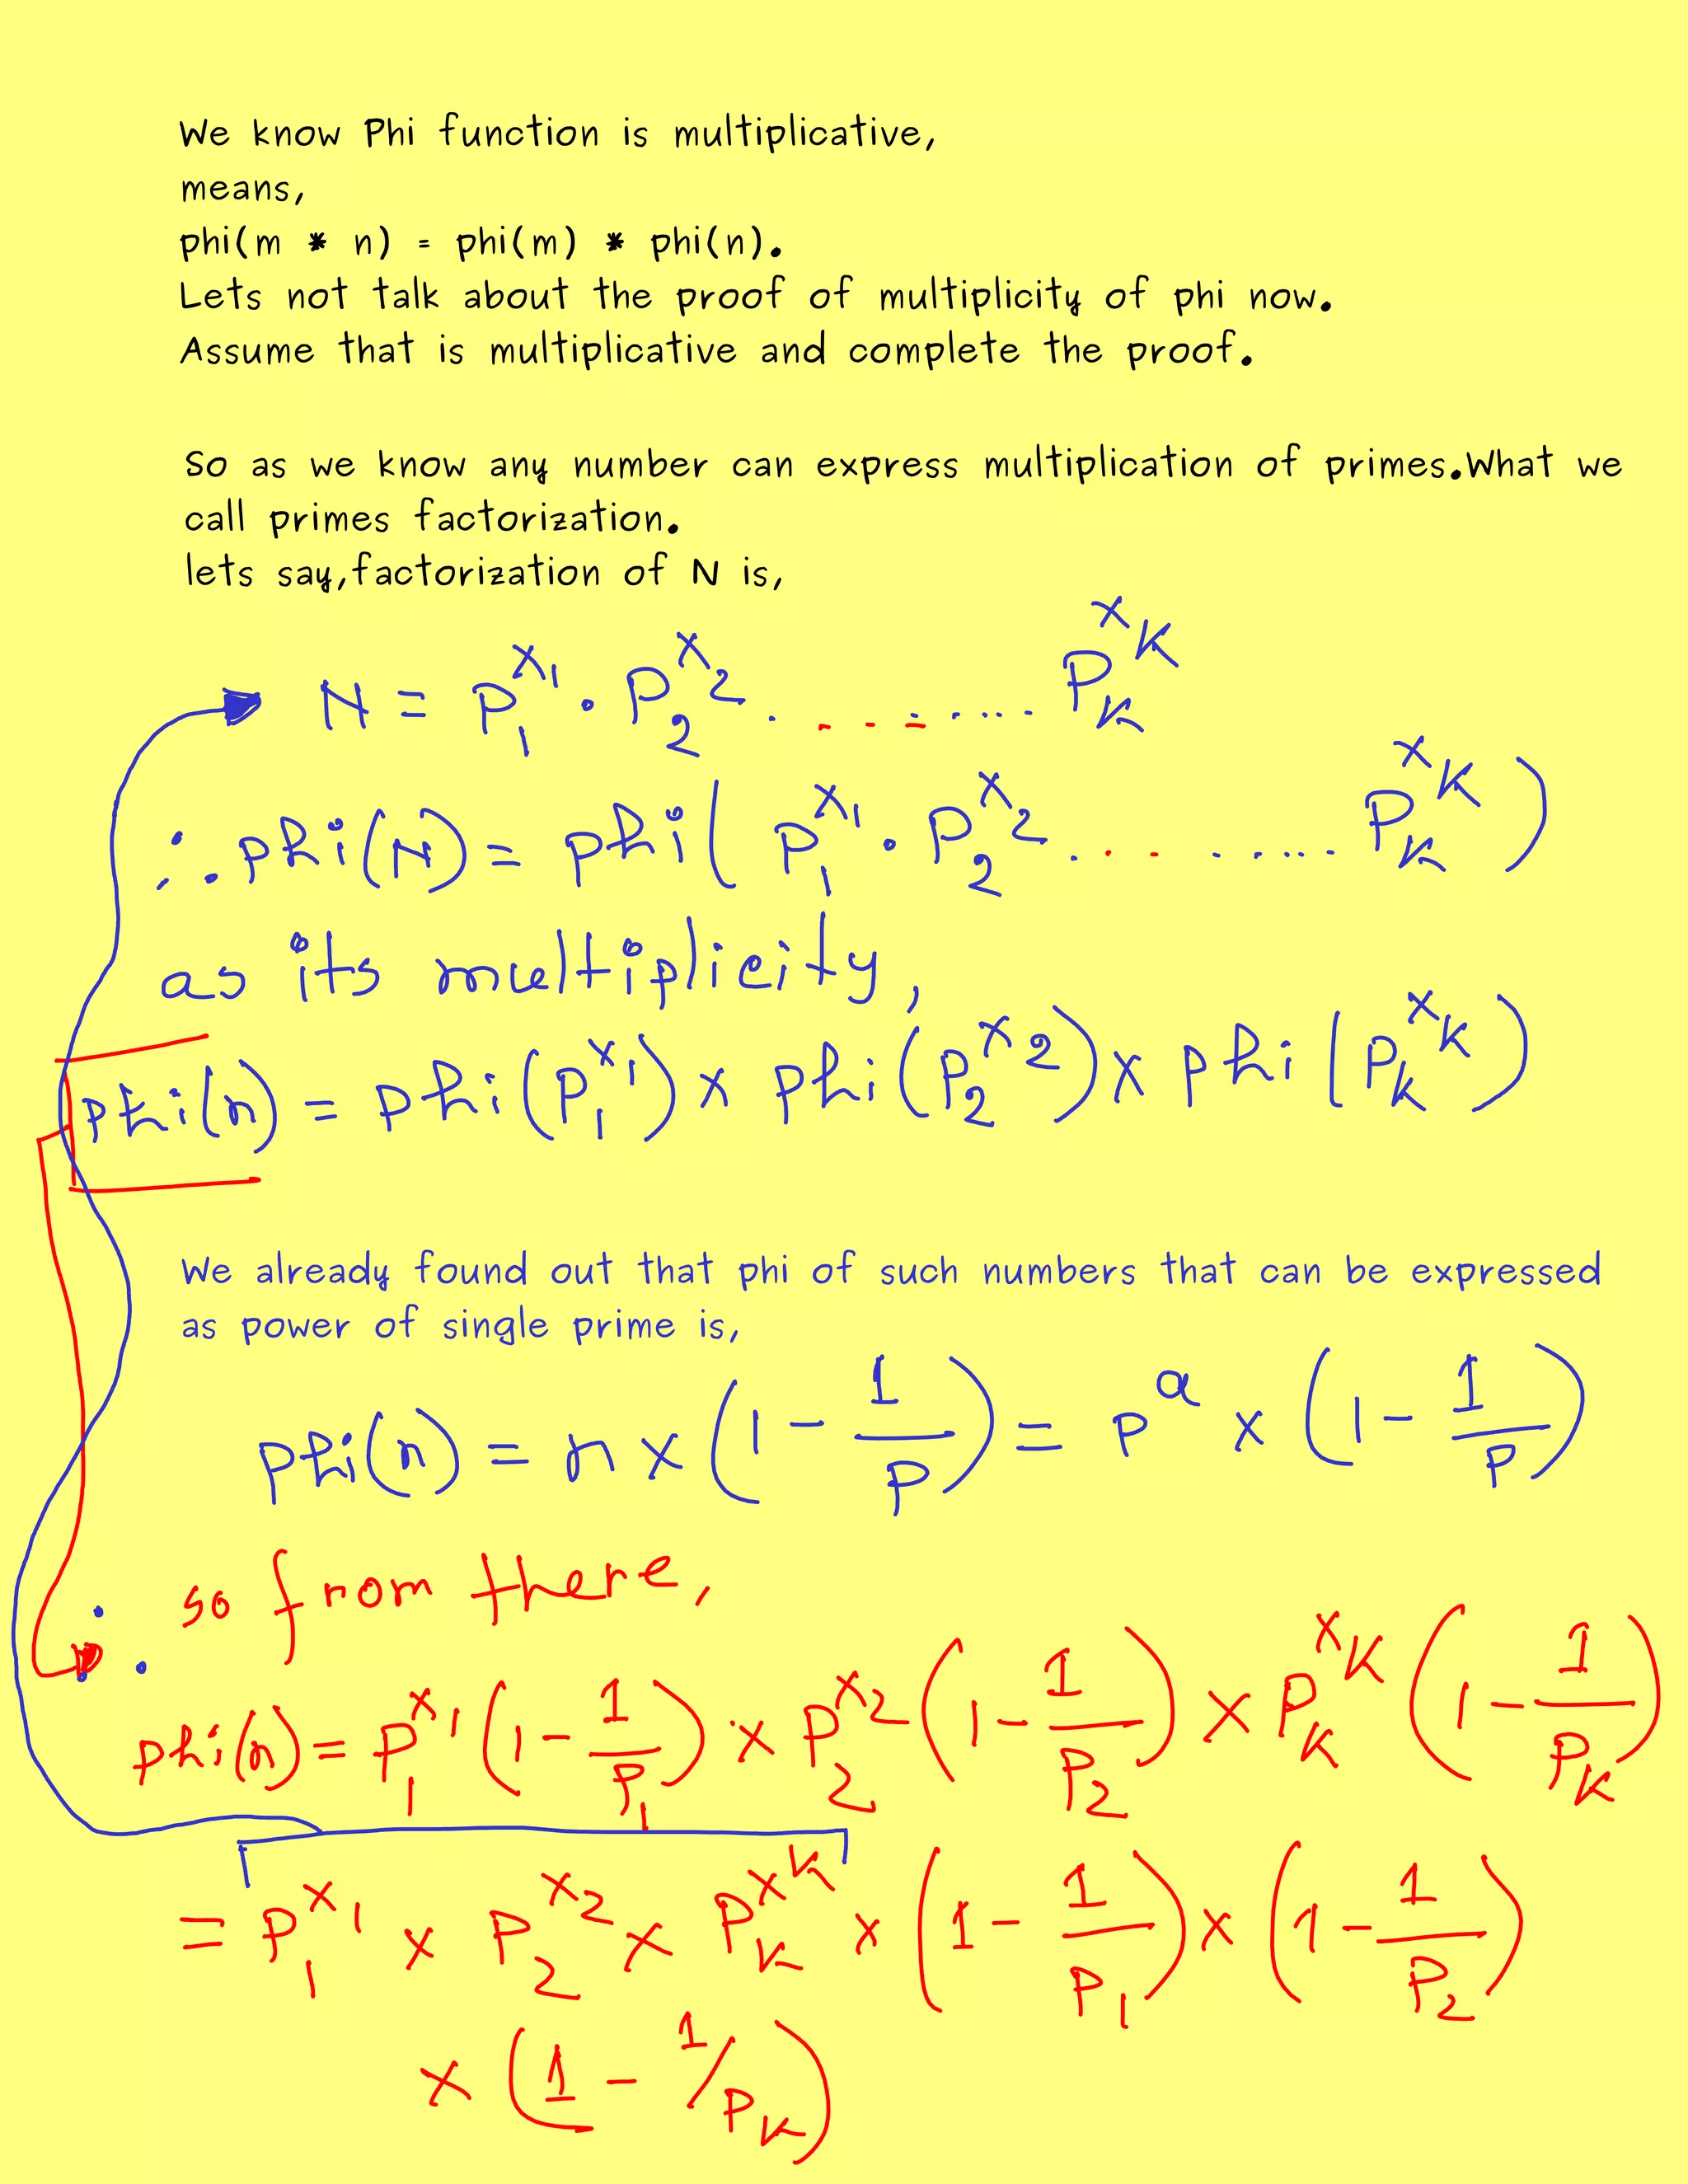 We know Phi function is multiplicative,
means,
phi(m * n) = phi(m) * phi(n).
Lets not talk about the proof of multiplicity of phi now.
Assume that is multiplicative and complete the proof.
So as we know any number can express multiplication of primes.What we
call primes factorization.
lets say,factorization of N is,
N = P₁^x₁ · P₂^x₂ . - - - . .... P_k^x_k
∴ phi(N) = phi( P₁^x₁ · P₂^x₂ . - - . ..... P_k^x_k )
as its multiplicity,
phi(n) = phi(P₁^x₁) × phi(P₂^x₂) × phi(P_k^x_k)
We already found out that phi of such numbers that can be expressed
as power of single prime is,
phi(n) = n × (1 - 1/P) = P^a × (1 - 1/P)
so from there,
∴ phi(n) = P₁^x₁ (1 - 1/P₁) × P₂^x₂ (1 - 1/P₂) × P_k^x_k (1 - 1/P_k)
= P₁^x₁ × P₂^x₂ × P_k^x_k × (1 - 1/P₁) × (1 - 1/P₂)
× (1 - 1/P_k)